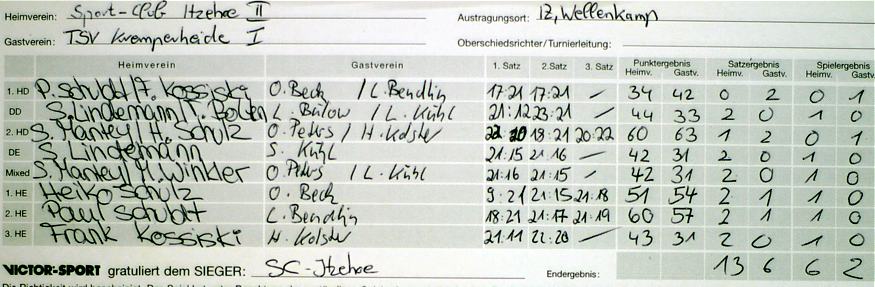 Heimverein: Sport-Club Itzehoe II Austragungsort: IZ, Wellenkamp
Gastverein: TSV Kremperheide I Oberschiedsrichter/Turnierleitung:
Heimverein Gastverein 1. Satz 2. Satz 3. Satz Punktergebnis Heimv. Gastv. Satzergebnis Heimv. Gastv. Spielergebnis Heimv. Gastv.
1. HD P. Schuldt/F. Kossiski O. Beck / L. Bendlin 17:21 17:21 — 34 42 0 2 0 1
DD S. Lindemann/T. Bolen L. Bülow / L. Kühl 21:12 23:21 — 44 33 2 0 1 0
2. HD S. Mantey / H. Schulz O. Peters / H. Kolster 22:20 18:21 20:22 60 63 1 2 0 1
DE S. Lindemann S. Kühl 21:15 21:16 — 42 31 2 0 1 0
Mixed S. Mantey / M. Winkler O. Peters / L. Kühl 21:16 21:15 — 42 31 2 0 1 0
1. HE Heiko Schulz O. Beck 9:21 21:15 21:18 51 54 2 1 1 0
2. HE Paul Schuldt L. Bendlin 18:21 21:17 21:19 60 57 2 1 1 0
3. HE Frank Kossiski H. Kolster 21:11 22:20 — 43 31 2 0 1 0
VICTOR-SPORT gratuliert dem SIEGER: SC-Itzehoe Endergebnis: 13 6 6 2